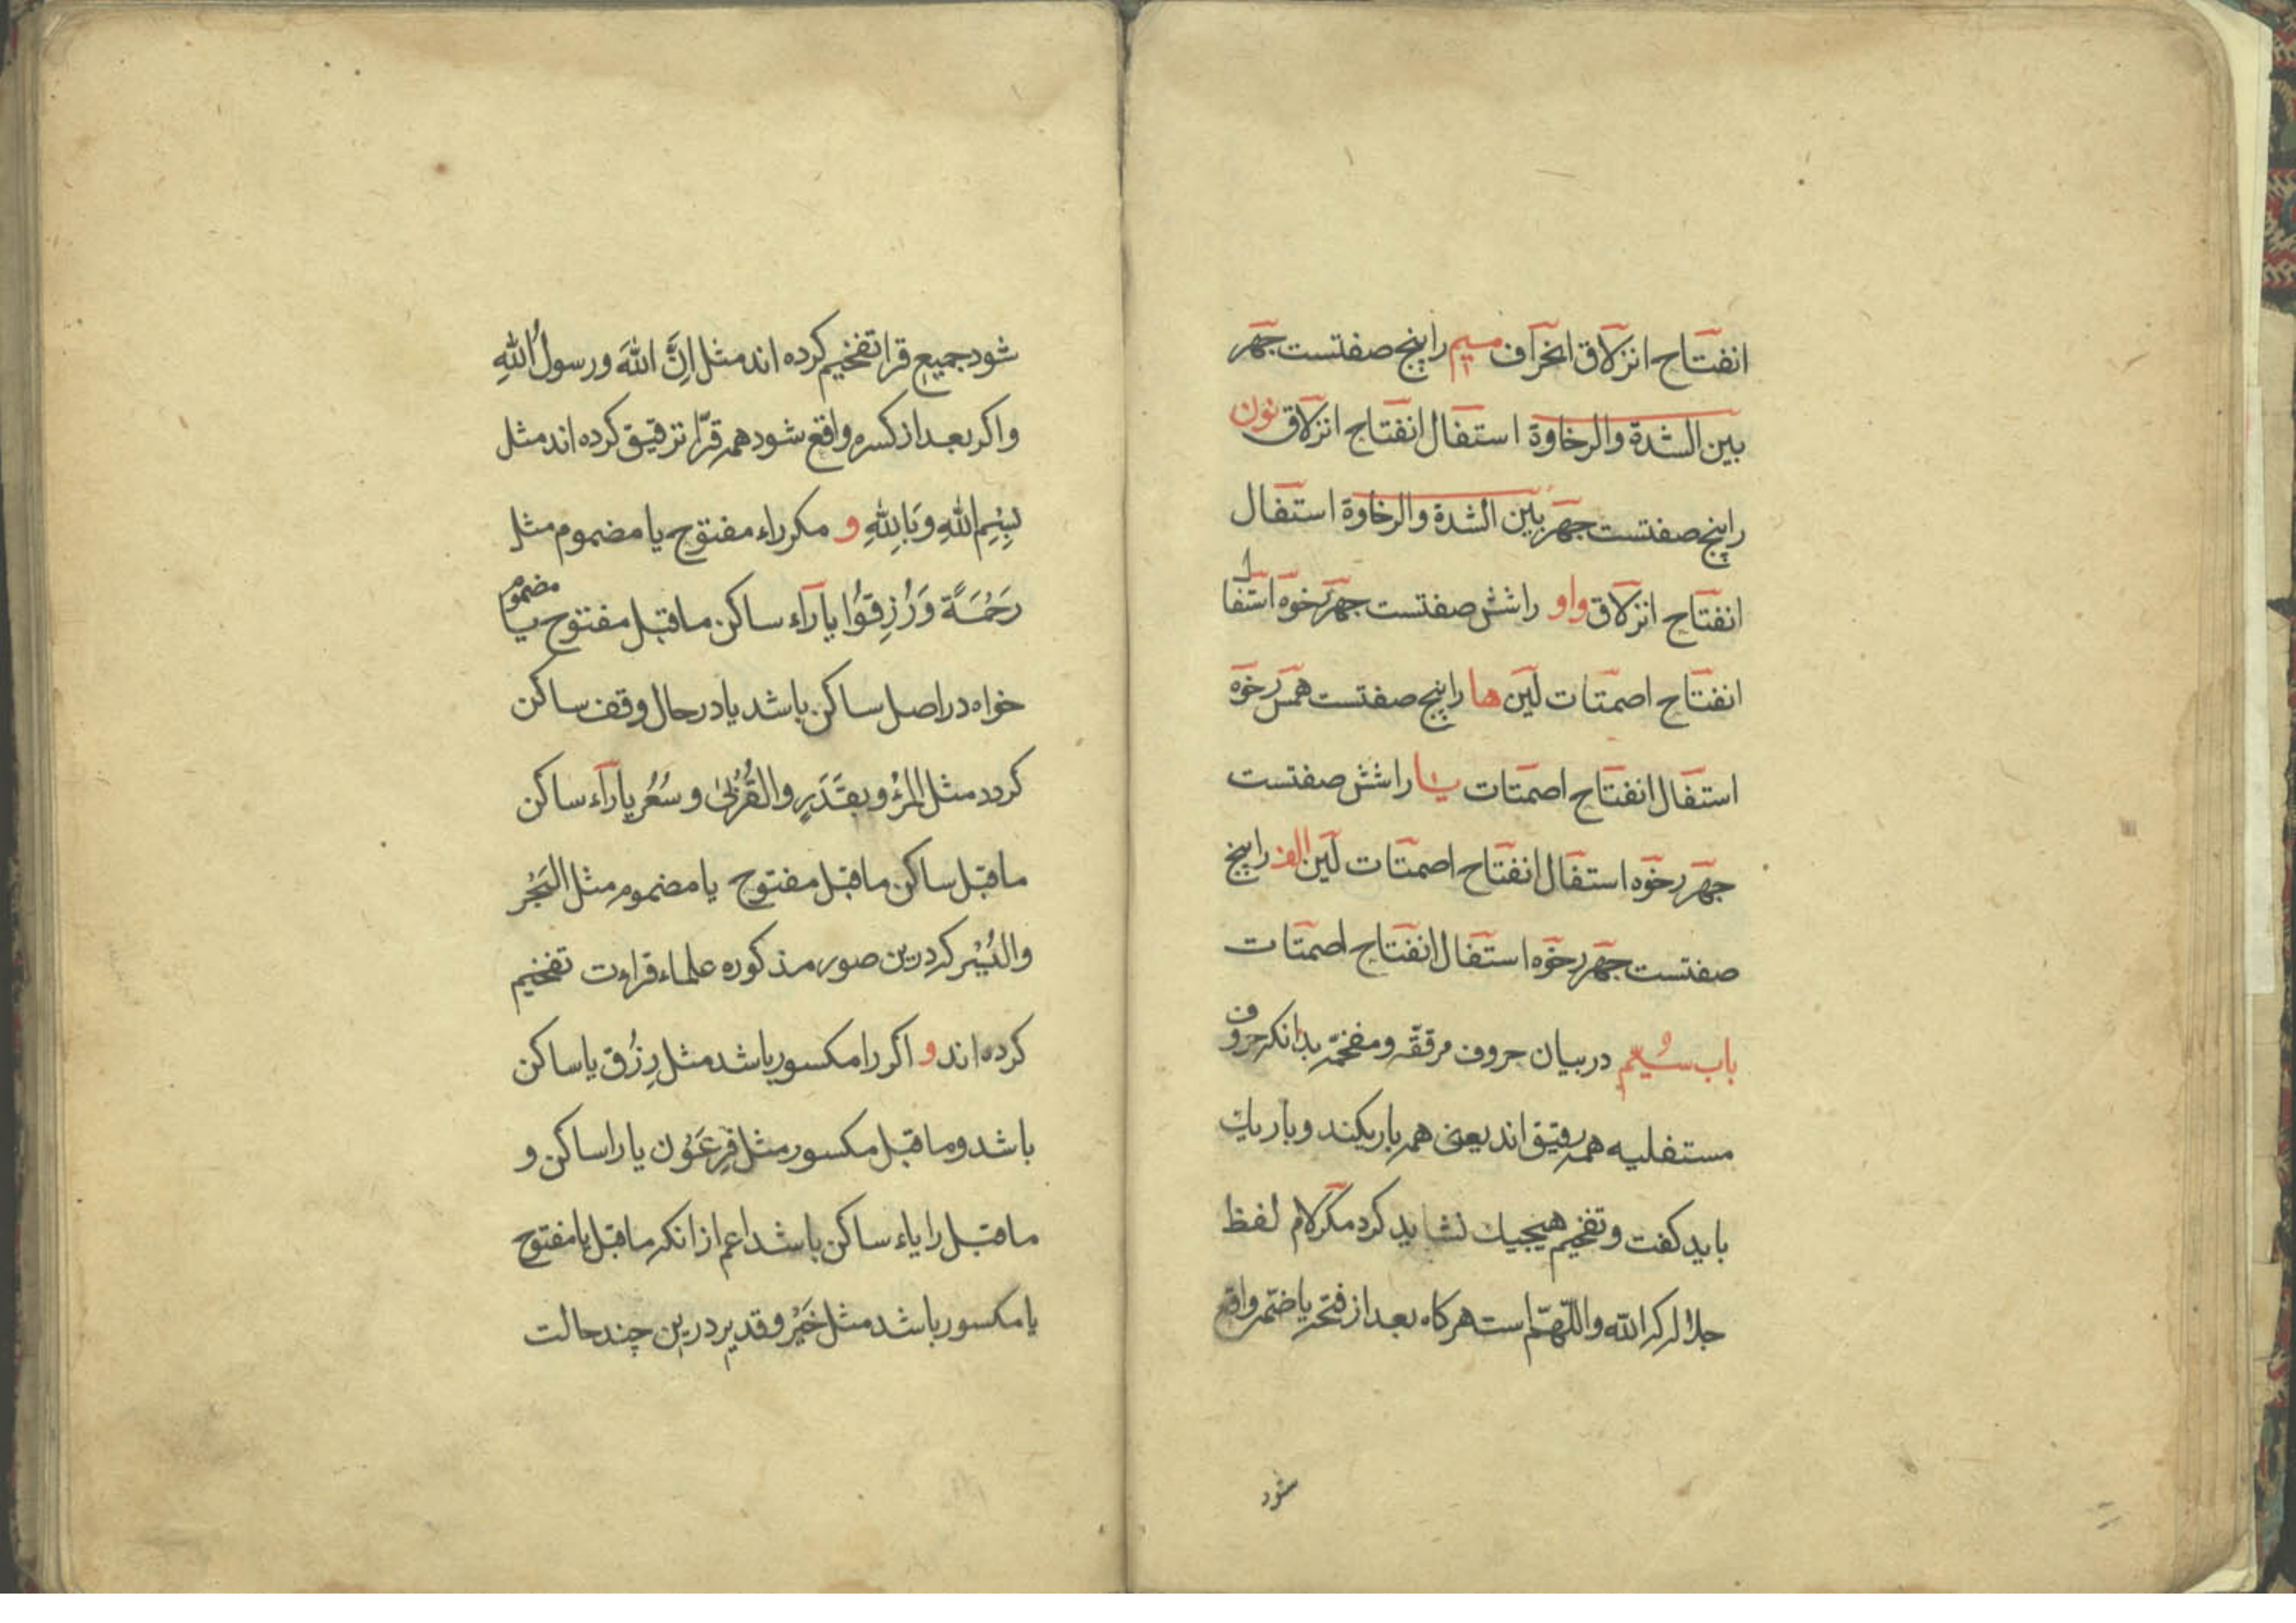 انفتاح انزلاق انحراف میم را پنج صفتست جهر
بین الشدة والرخاوة استفال انفتاح انزلاق نون
را پنج صفتست جهر بین الشدة والرخاوة استفال
انفتاح انزلاق واو را شش صفتست جهر رخوه استفال
انفتاح اصمتات لین ها را پنج صفتست همس رخوه
استفال انفتاح اصمتات یا را شش صفتست
جهر رخوه استفال انفتاح اصمتات لین الف را پنج
صفتست جهر رخوه استفال انفتاح اصمتات
باب سُیُم در بیان حروف مرققه ومفخمه بدانکه حروف
مستفلیه همه رقیق اند یعنی همه باریکند و باریك
باید کفت و تفخیم هیچیك نشاید کرد مکر لام لفظ
جلاله که الله واللّهمّ است هرکاه بعد از فتحه یا ضمه واقع
شود
شود جمیع قرا تفخیم کرده اند مثل اِنَّ اللهَ ورسولُ اللهِ
واکر بعد از کسره واقع شود همه قرّا ترقیق کرده اند مثل
بِسْمِ اللهِ وَبِاللهِ و مکر راء مفتوح یا مضموم مثل
رَحْمَةً وَرُزِقُوْا یا رآء ساکن ماقبل مفتوح یا مضموم
خواه در اصل ساکن باشد یا در حال وقف ساکن
کردد مثل المرْء وبقَدَرٍ والقُرْبیٰ وسُعُر یا رآء ساکن
ماقبل ساکن ماقبل مفتوح یا مضموم مثل
والیُسْر که درین صور مذکوره علماء قراءت تفخیم
کرده اند و اکر را مکسور باشد مثل رِزْق یا ساکن
باشد وماقبل مکسور مثل فِرعَوْن یا را ساکن و
ماقبل را یاء ساکن باشد اعم از انکه ماقبل یا مفتوح
یا مکسور باشد مثل خَیْر و قدیر درین چند حالت